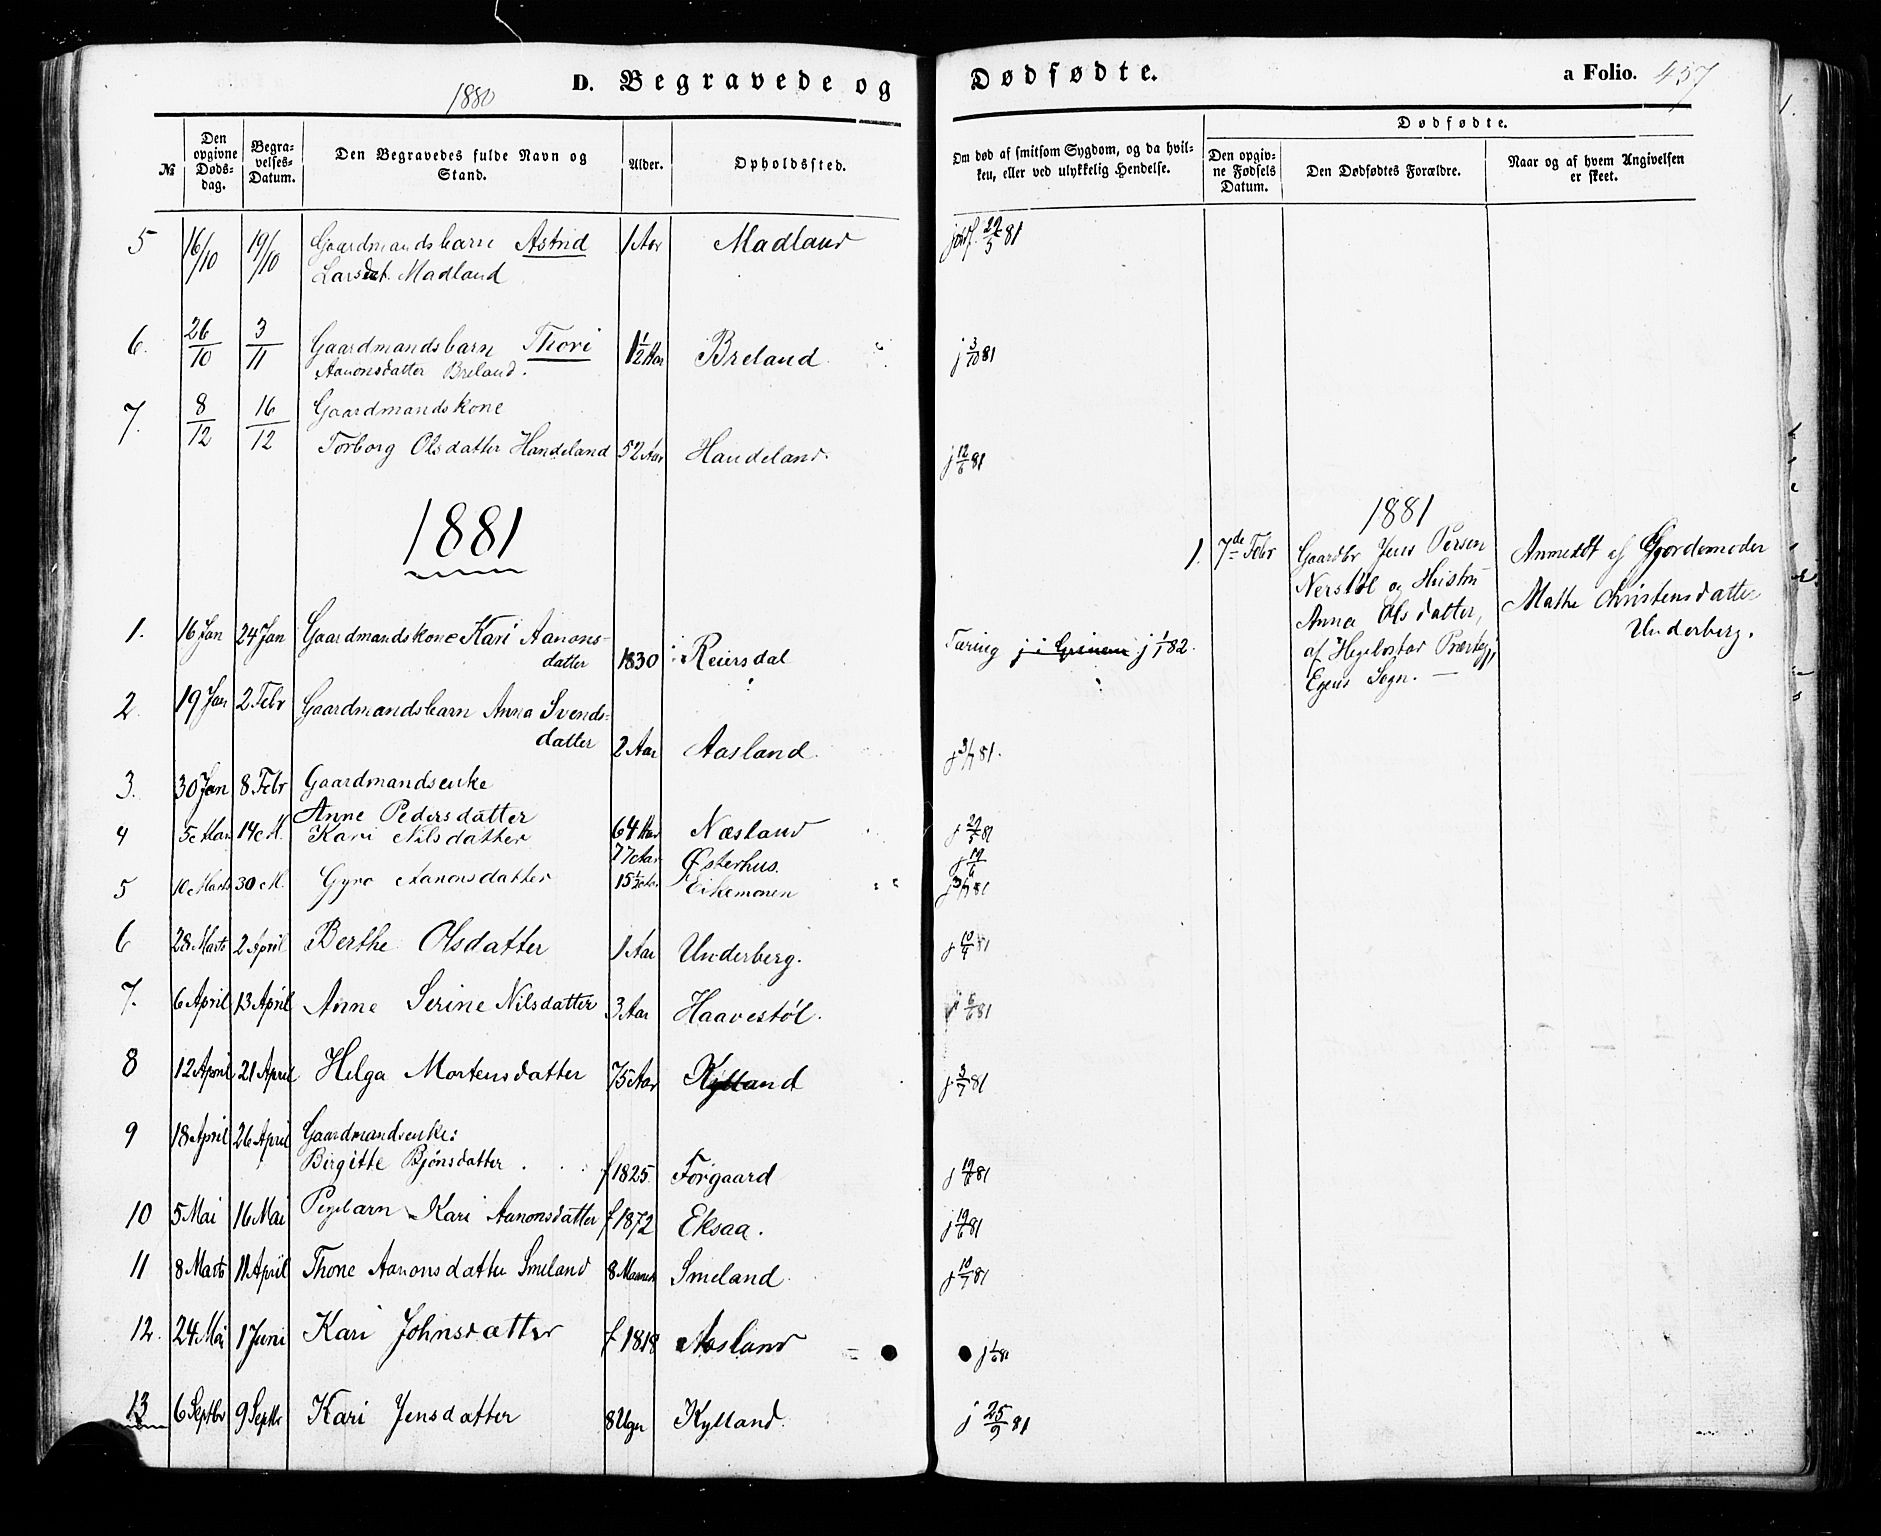 1880
D. Begravede og Dødfødte. a Folio. 457
№
Den opgivne Døds-dag.
Begra-velses-Datum.
Den Begravedes fulde Navn og Stand.
Alder.
Opholdssted.
Om død af smitsom Sygdom, og da hvil-ken, eller ved ulykkelig Hendelse.
Dødfødte.
Den opgiv-ne Fødsels Datum.
Den Dødfødtes Forældre.
Naar og af hvem Angivelsen er skeet.
5 16/10 19/10 Gaardmandsbarn Astrid 1 Aar Madland 22/5 81
Larsdat. Madland
6. 26/10 3/11 Gaardmandsbarn Thori 1½ Aar Breland j 3/10 81
Aanonsdatter Breland.
7. 8/12 16/12 Gaardmandskone
Torborg Olsdatter Handeland 52 Aar Haudeland. j 12/6 81
1881
1. 16 Jan 24 Jan Gaardmandskone Kari Aanons-
datter 1830 Reiersdal Tæring j 1/1 82.
2. 19 Jan 2 Febr Gaardmandsbarn Anna Svends-
datter 2 Aar Aasland. j 3/7 81.
3. 30 Jan 8 Febr Gaardmandsenke
Anne Pedersdatter 64 Aar Næsland j 29/5 81
4 5 Mar 14 M. Kari Nilsdatter 77 Aar Østerhus. j 19/6
5 10 Marts 30 M. Gyro Aanonsdatter 15½ Aar Eikemonen j 3/7 81
6 28 Marts 2 April Berthe Olsdatter 1 Aar Underberg. j 10/4 81
7. 6 April 13 April Anne Serine Nilsdatter 3 Aar Haavestøl. j 6/6 81
8 12 April 21 April Helga Mortensdatter 75 Aar Kylland j 3/7 81
9 18 April 26 April Gaardmandsenke:
Birgitte Bjønsdatter f 1825 Forgaard j 19/6 81
10 5 Mai 16 Mai Pigebarn Kari Aanonsdatter f 1872 Eksaa. j 19/6 81
11 8 Marts 11 April Thone Aanonsdatter Smeland 8 Smeland j 10/7 81
12. 24 Mai 1 Juni Kari Johnsdatter f 1818 Aasland j 1/6 81
13 6 Septbr 9 Septbr Kari Jensdatter 8 Uger Kylland. j 25/9 81
1881
1. 7de Febr Gaardbr Jens Persen
Nerstøl og Hustru
Anna Olsdatter,
af Hegebostad Præstegj,
Egens Sogn. —
Anmeldt af Gjordemoder
Mathe Christensdatter
Underberg.